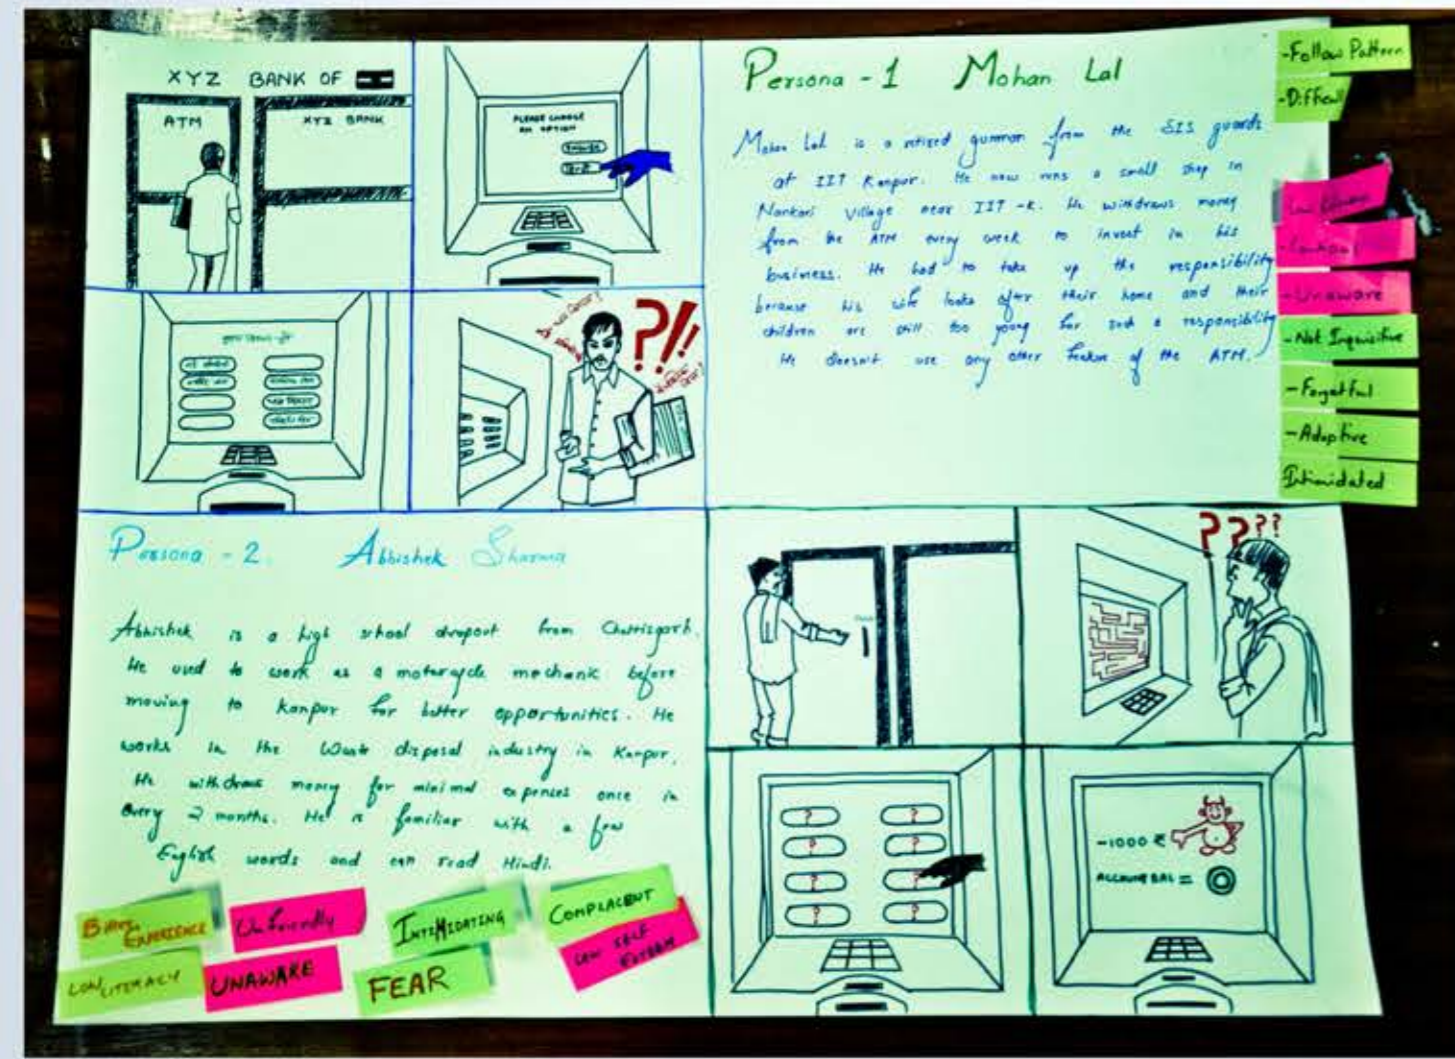 XYZ BANK OF
ATM
XYZ BANK
PLEASE CHOOSE
AN OPTION
ENGLISH
Persona - 1 Mohan Lal
Mohan Lal is a retired gunman from the SIS guards
at IIT Kanpur. He now runs a small shop in
Nankari Village near IIT -K. He withdraws money
from the ATM every week to invest in his
business. He had to take up the responsibility
because his wife looks after their home and their
children are still too young for such a responsibility
He doesn't use any other feature of the ATM.
-Follow Pattern
-Difficult
-Unaware
-Not Inquisitive
-Forgetful
-Adaptive
Intimidated
?!!
Persona - 2. Abhishek Sharma
Abhishek is a high school dropout from Chattisgarh.
He used to work as a motorcycle mechanic before
moving to Kanpur for better opportunities. He
works in the Waste disposal industry in Kanpur.
He withdraws money for minimal expenses once in
every 2 months. He is familiar with a few
English words and can read Hindi.
EXPERIENCE
Unfriendly
INTIMIDATING
COMPLACENT
LOW LITERACY
UNAWARE
FEAR
LOW SELF
ESTEEM
????
? ?
? ?
? ?
? ?
-1000 ₹
ACCOUNT BAL =